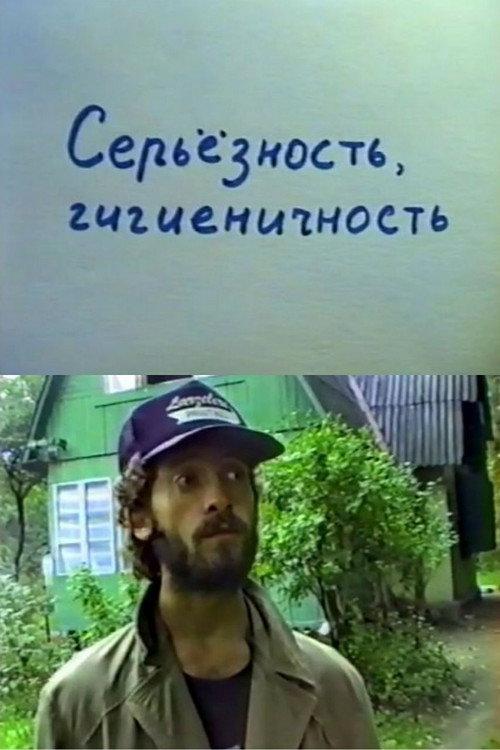 Серьёзность,
гигиеничность